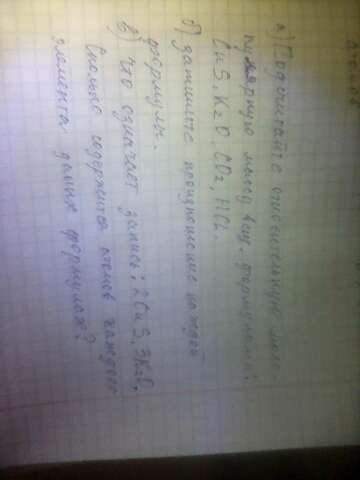 а) Подсчитайте относительную моле-
кулярную массу вещ. формулами:
CuS, K2O, CO2, HCl.
б) запишите произношение каждой
формулы.
в) Что означает запись: 2CuS, 3K2O,
Сколько содержится атомов каждого
элемента данных формулах?